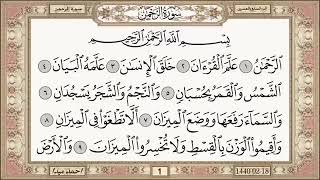 سُورَةُ الرَّحْمَٰن
بِسْمِ اللَّهِ الرَّحْمَٰنِ الرَّحِيمِ
الرَّحْمَٰنُ ١ عَلَّمَ الْقُرْءَانَ ٢ خَلَقَ الْإِنسَٰنَ ٣ عَلَّمَهُ الْبَيَانَ ٤
الشَّمْسُ وَالْقَمَرُ بِحُسْبَانٍ ٥ وَالنَّجْمُ وَالشَّجَرُ يَسْجُدَانِ ٦
وَالسَّمَاءَ رَفَعَهَا وَوَضَعَ الْمِيزَانَ ٧ أَلَّا تَطْغَوْا فِي الْمِيزَانِ ٨
وَأَقِيمُوا الْوَزْنَ بِالْقِسْطِ وَلَا تُخْسِرُوا الْمِيزَانَ ٩ وَالْأَرْضَ
1
1440/02/18